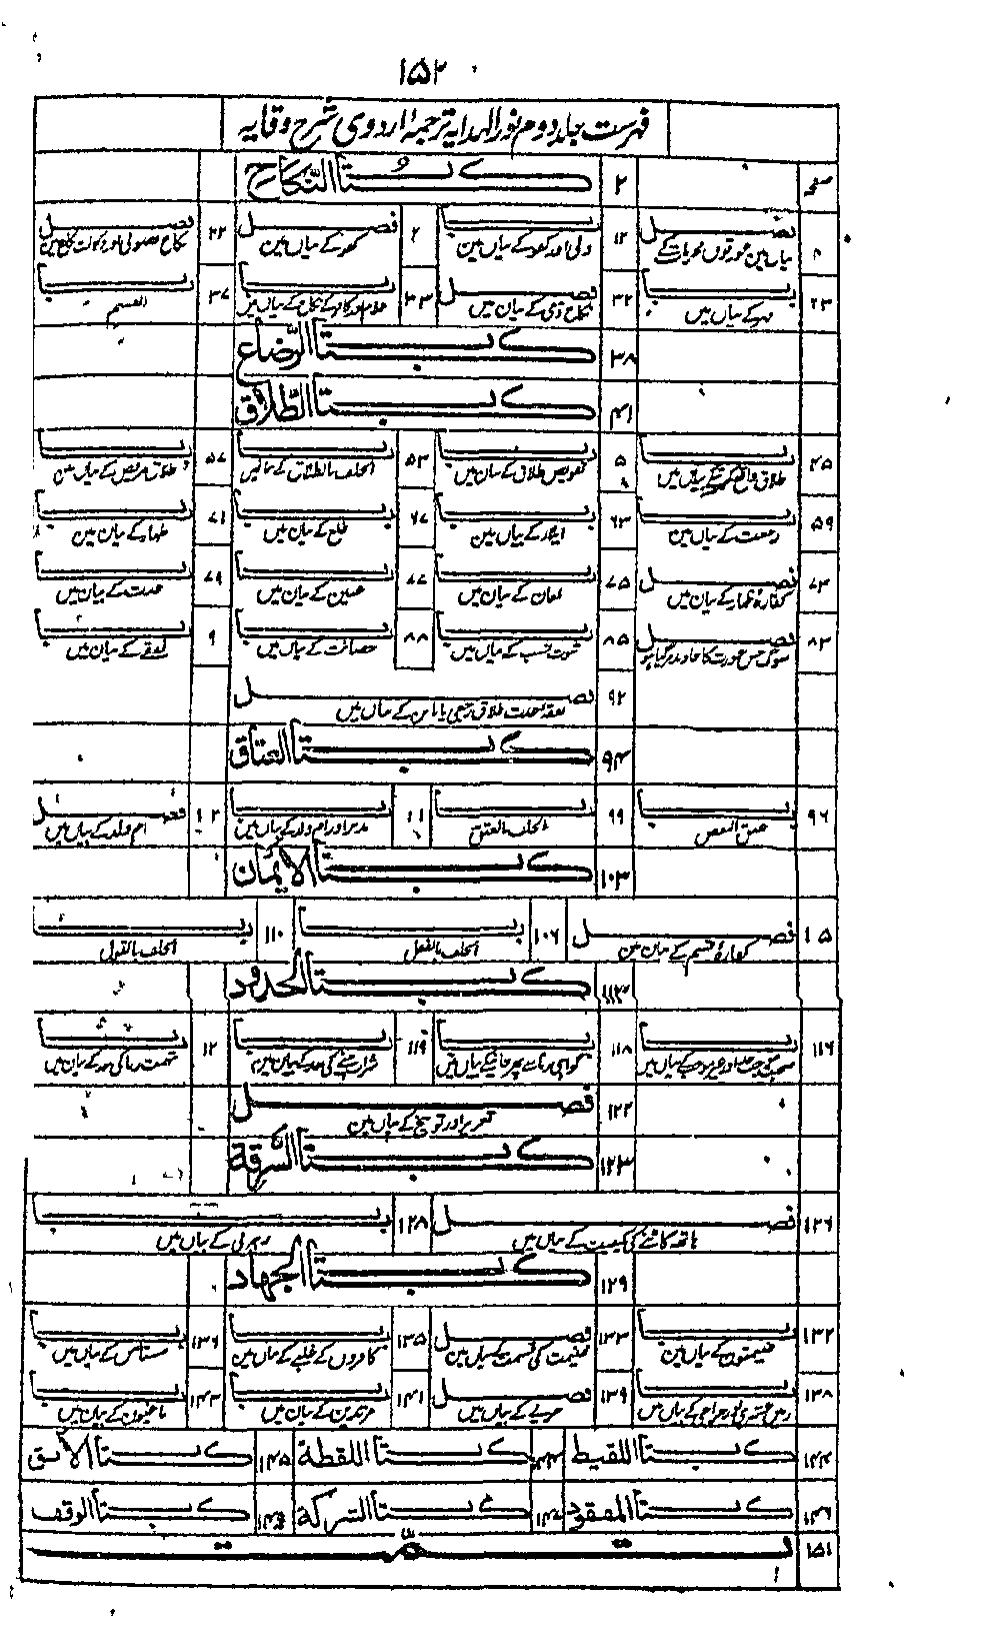 ۱۵۲
فہرست جلد دوم نور الہدایہ ترجمہ اردوی شرح وقایہ
صفحہ ۲ کتاب النکاح
فصل بیان میں عورتوں محرمات کے ۱۲ باب ولی اور کفو کے بیان مین ۲ فصل مہر کے بیان مین ۲۲ فصل نکاح فضولی اور وکالت نکاح مین
۲۳ باب مہر کے بیان میں ۳۲ فصل نکاح ذمی کے بیان میں ۳۳ باب غلام اور کافر کے نکاح کے بیان میں ۳۷ باب القسم
۳۸ کتاب الرضاع
۴۱ کتاب الطلاق
۴۵ باب طلاق واقع کے بیان میں ۵ باب تفویض طلاق کے بیان میں ۵۳ باب الحلف بالطلاق کے بیان میں ۵۷ باب طلاق مریض کے بیان میں
۵۹ باب رجعت کے بیان مین ۶۳ باب ایلاء کے بیان مین ۶۷ باب خلع کے بیان میں ۷۱ باب ظہار کے بیان مین
۷۳ فصل کفارۂ ظہار کے بیان میں ۷۵ باب لعان کے بیان میں ۷۷ باب عنین کے بیان میں ۷۹ باب عدت کے بیان میں
۸۳ فصل سوگ جس عورت کا خاوند مر گیا ہو ۸۵ باب ثبوت نسب کے بیان میں ۸۸ باب حضانت کے بیان میں ۹ باب نفقے کے بیان میں
۹۲ فصل نفقہ عدت طلاق رجعی یا بائن کے بیان میں
۹۴ کتاب العتاق
۹۶ باب عتق البعض ۹۹ باب الحلف بالعتق ۱۱ باب مدبر اور ام ولد کے بیان میں ۱۲ فصل ام ولد کے بیان میں
۱۰۳ کتاب الایمان
۱۵ فصل کفارۂ قسم کے بیان مین ۱۰۶ باب الحلف بالفعل ۱۱۰ باب الحلف بالقول
۱۱۴ کتاب الحدود
۱۱۶ باب ۱۱۸ باب گواہی زنا سے پھر جانیکے بیان میں ۱۱۹ باب شراب پینے کی حد کے بیان میں ۱۲ باب تہمت زنا کی حد کے بیان میں
۱۲۲ فصل تعزیر اور توبیخ کے بیان مین
۱۲۳ کتاب السرقة
۱۲۶ فصل ہاتھ کاٹنے کی کیفیت کے بیان میں ۱۲۸ باب رہزنی کے بیان میں
۱۲۹ کتاب الجہاد
۱۳۲ باب غنیمتوں کے بیان مین ۱۳۳ فصل غنیمت کی قسمت کے بیان مین ۱۳۵ باب کافروں کے غلبے کے بیان مین ۱۳۶ باب مستامن کے بیان میں
۱۳۸ باب زمین عشری اور خراجی کے بیان میں ۱۳۹ فصل جزیے کے بیان میں ۱۴۱ باب مرتدین کے بیان میں ۱۴۳ باب باغیوں کے بیان مین
۱۴۴ کتاب اللقیط ۱۴۴ کتاب اللقطة ۱۴۵ کتاب الآبق
۱۴۶ کتاب المفقود ۱۴۷ کتاب الشرکة ۱۴۹ کتاب الوقف
۱۵۱ تمت